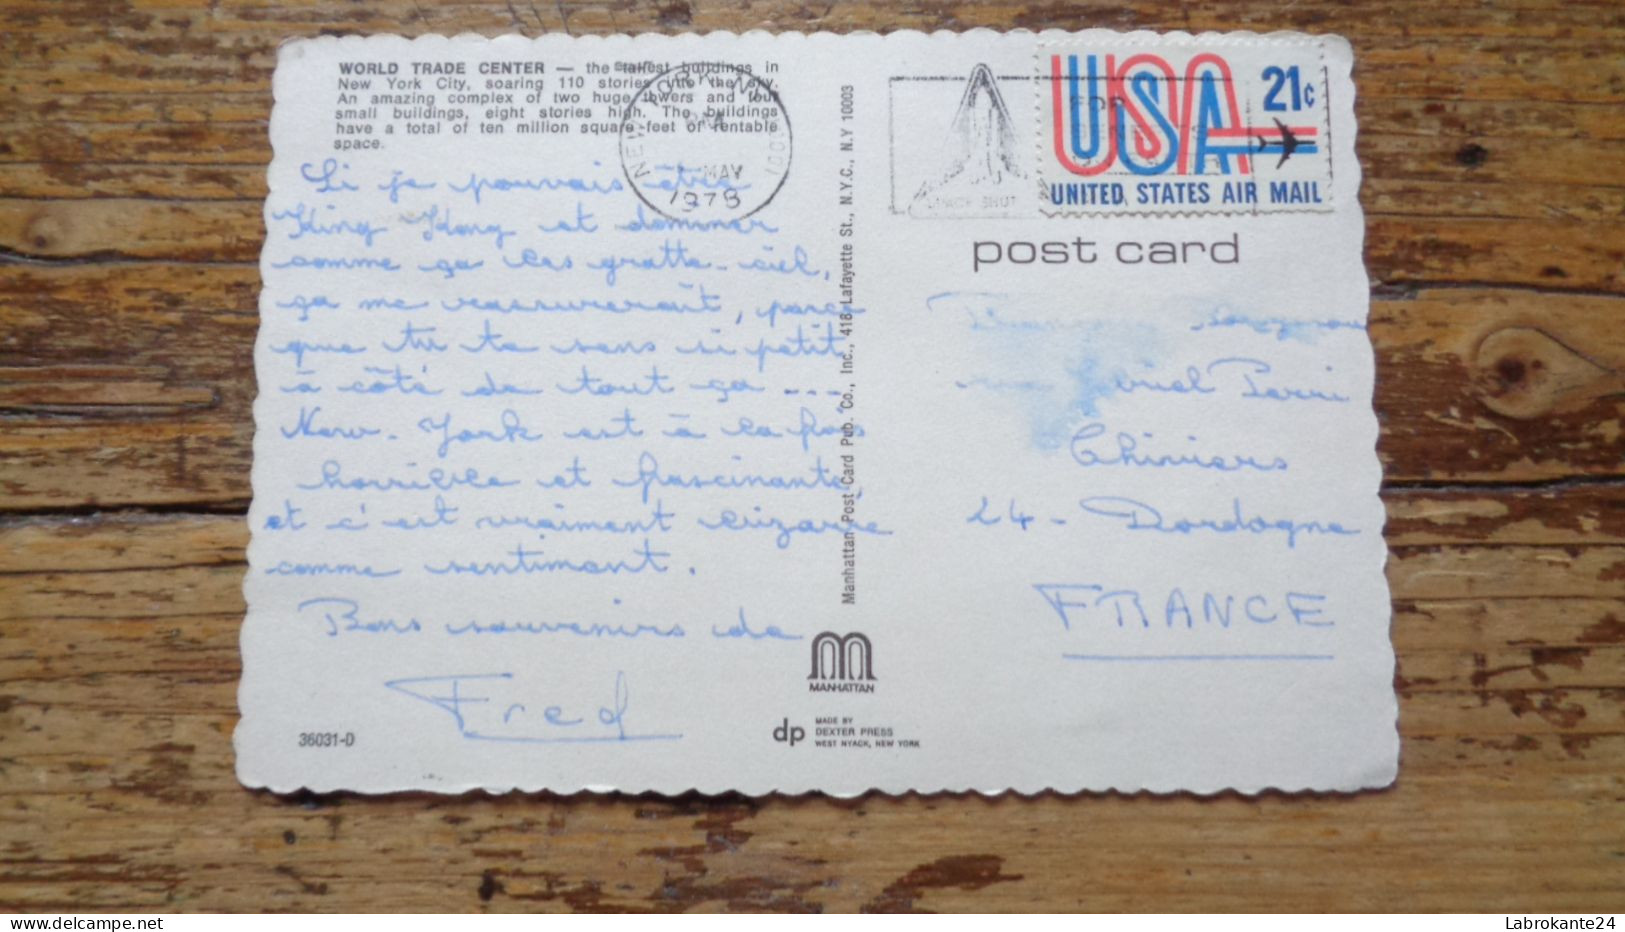 WORLD TRADE CENTER — the tallest buildings in
New York City, soaring 110 stories into the sky.
An amazing complex of two huge towers and four
small buildings, eight stories high. The buildings
have a total of ten million square feet of rentable
space.
Si je pouvais être
King Kong et dominer
comme ça les gratte-ciel,
ça me rassurerait, parce
que tu te sens si petit
à côté de tout ça ---
New-York est à la fois
horrible et fascinante,
et c'est vraiment bizarre
comme sentiment.
Bons souvenirs de
Fred
36031-D
Manhattan Post Card Pub. Co., Inc., 418 Lafayette St., N.Y.C., N.Y 10003
MANHATTAN
dp MADE BY
DEXTER PRESS
WEST NYACK, NEW YORK
NEW YORK, N.Y.
PM
MAY
1978
1001
FOR
USA 21c
UNITED STATES AIR MAIL
post card
Chiniers
24 - Dordogne
FRANCE
Labrokante24